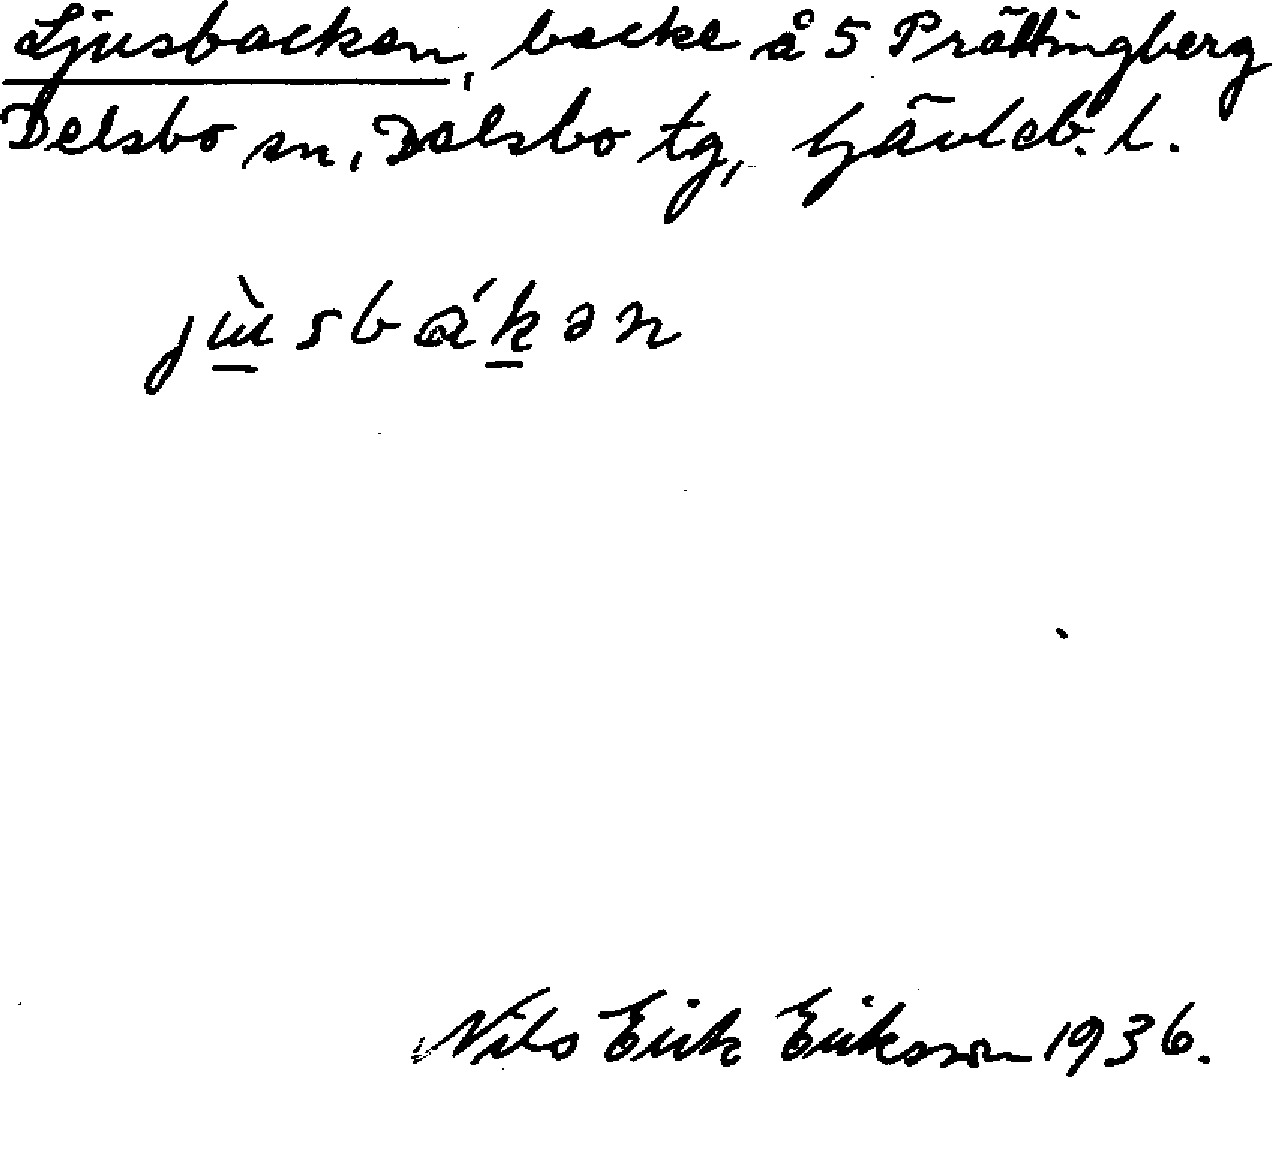 Ljusbacken, backe å 5 Prättingberg
Delsbo sn, Delsbo tg, Gävleb. l.
jùsbákən
Nils Erik Eriksson 1936.